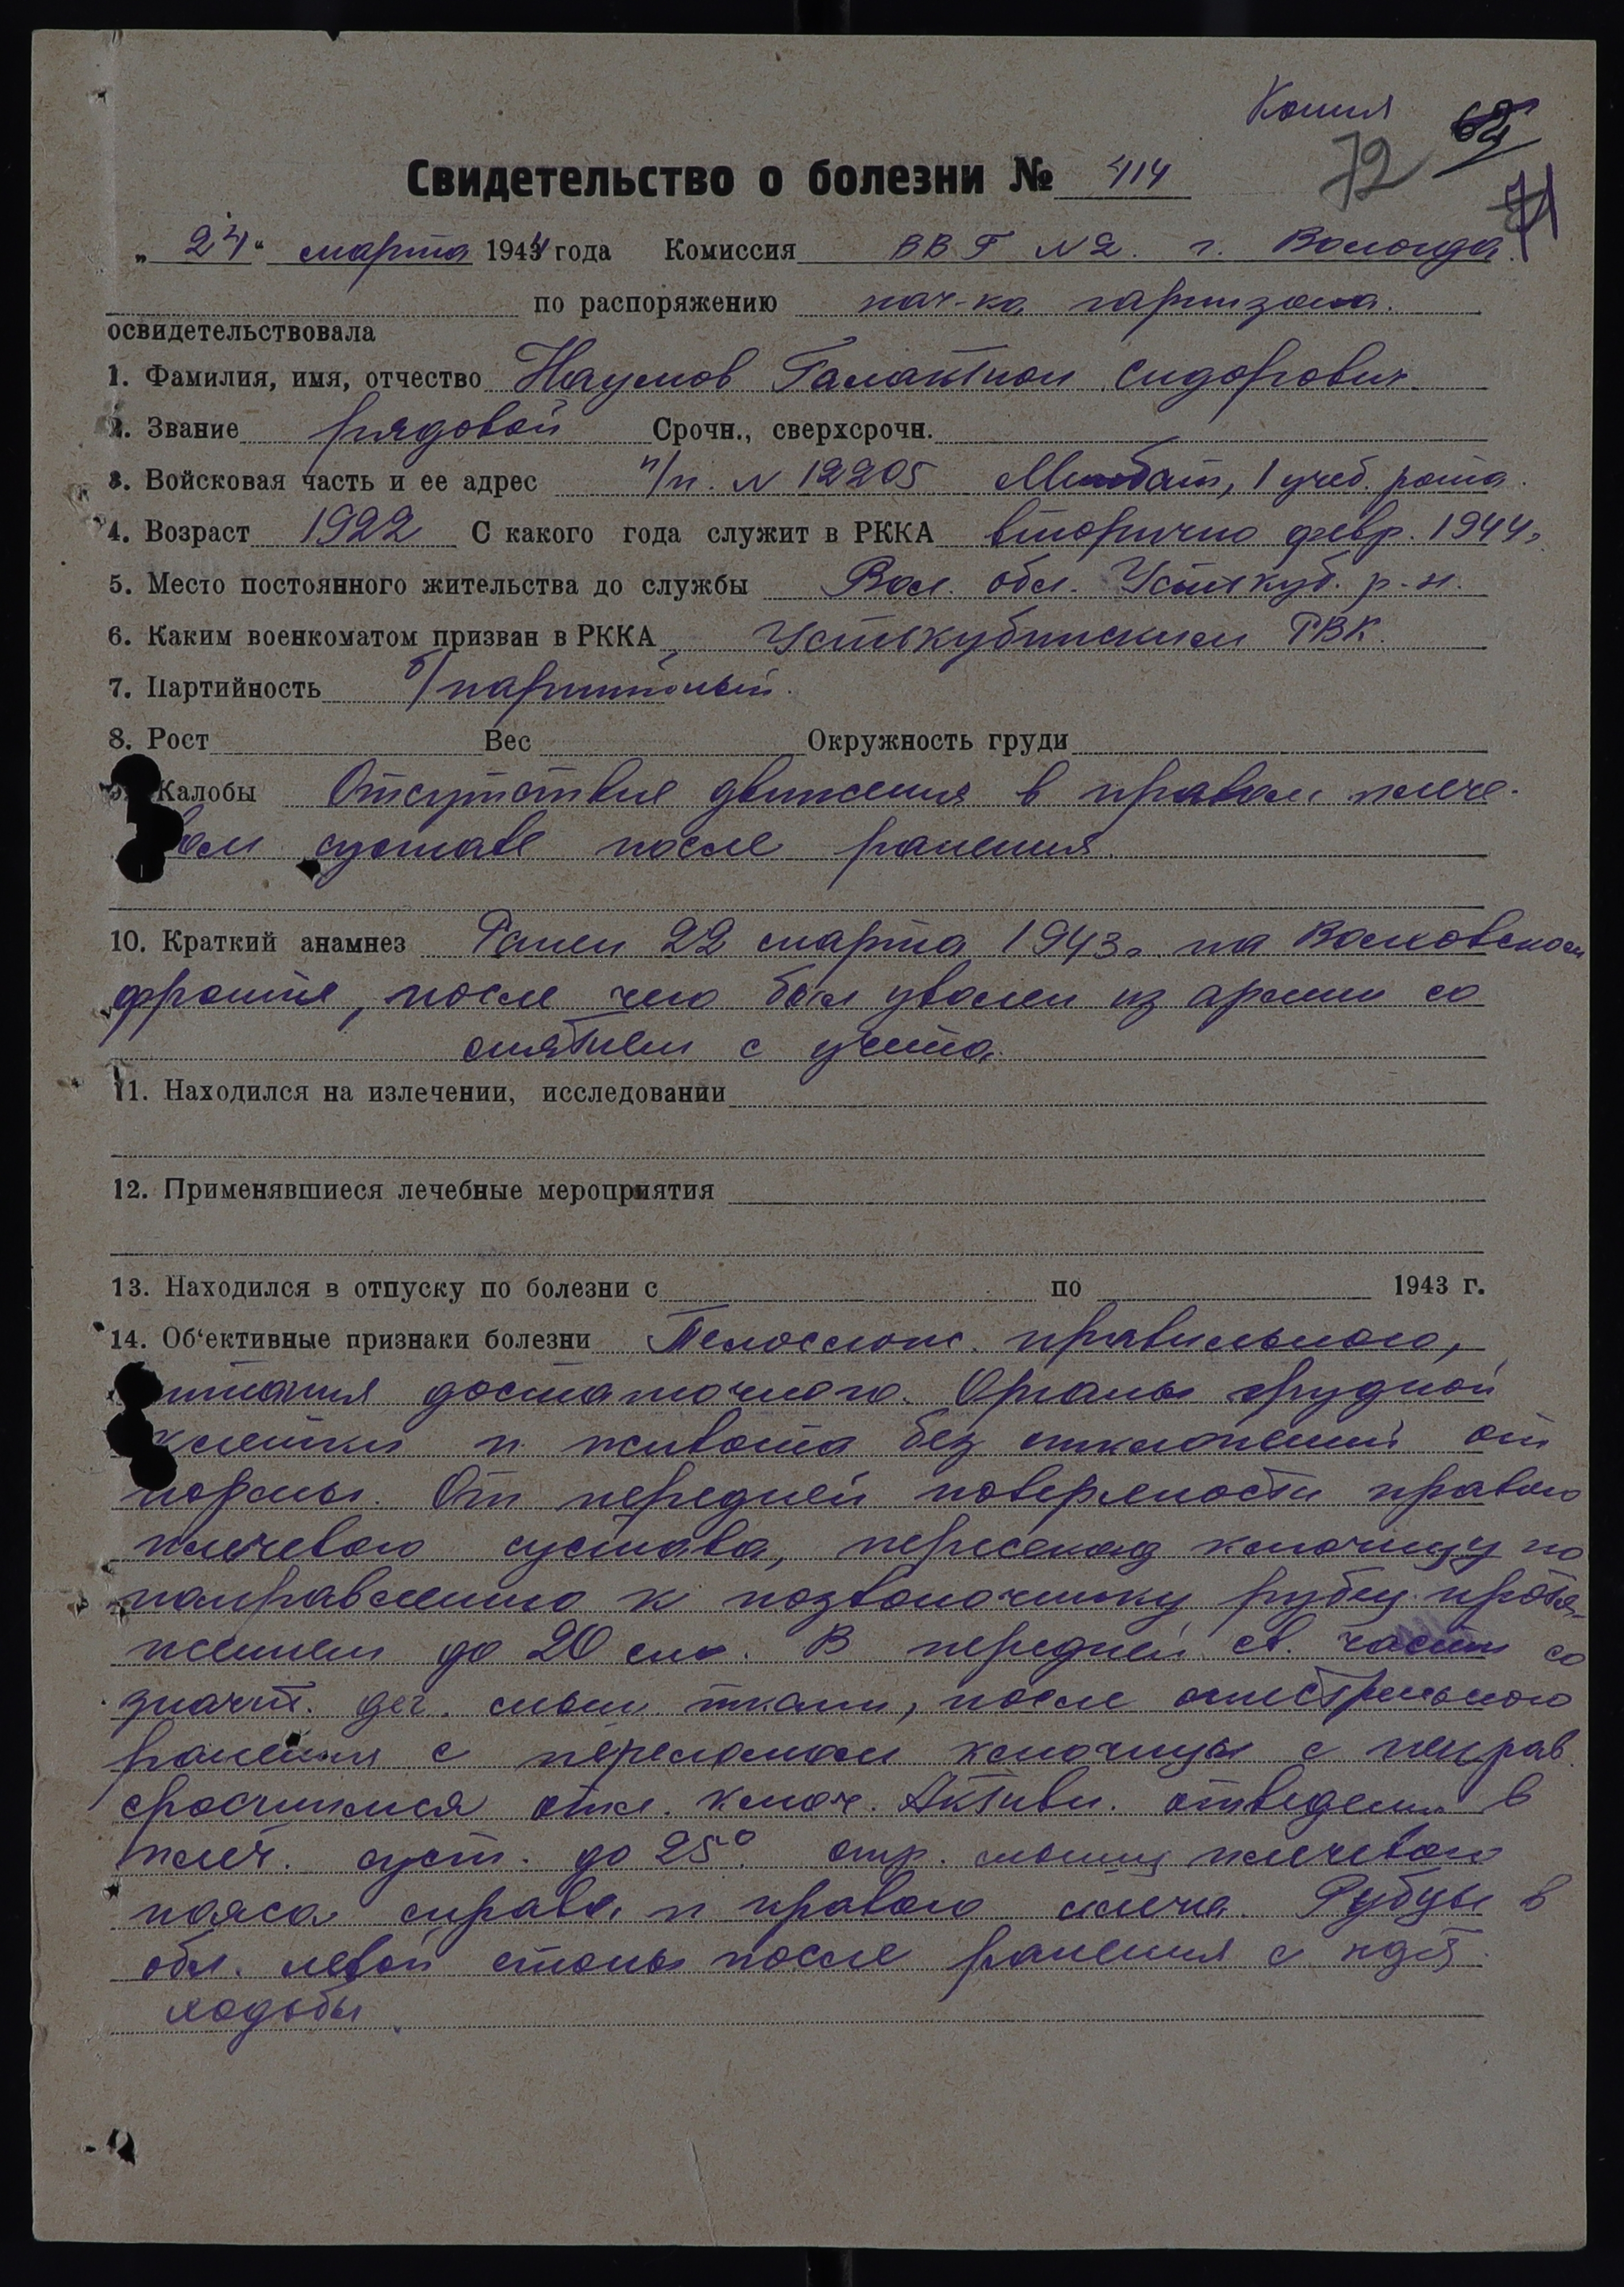 Копия
72
71
Свидетельство о болезни № 414
„ 24 “ марта 1944 года Комиссия ВВГ №2. г. Вологда.
по распоряжению нач-ка гарнизона.
освидетельствовала
1. Фамилия, имя, отчество Наумов Галактион Сидорович
2. Звание рядовой Срочн., сверхсрочн.
3. Войсковая часть и ее адрес п/п. № 12205 Минбат, 1 учеб. рота.
4. Возраст 1922 С какого года служит в РККА вторично февр. 1944г.
5. Место постоянного жительства до службы Вол. обл. Устькуб. р-н.
6. Каким военкоматом призван в РККА Устькубинским РВК.
7. Партийность б/партийный.
8. Рост Вес Окружность груди
9. Жалобы Отсутствие движения в правом плече-
вом суставе после ранения.
10. Краткий анамнез Ранен 22 марта 1943г. на Волховском
фронте, после чего был уволен из армии со
снятием с учета.
11. Находился на излечении, исследовании
12. Применявшиеся лечебные мероприятия
13. Находился в отпуску по болезни с по 1943 г.
14. Об'ективные признаки болезни Телослож. правильного,
питания достаточного. Органы грудной
клетки и живота без отклонений от
нормы. От передней поверхности правого
плечевого сустава, пересекая ключицу по
направлению к позвоночнику рубец протя-
жением до 20 см. В передней ее части со
значит. деф. мышц ткани, после огнестрельного
ранения с переломом ключицы с неправ.
сросшимися отл. ключ. Активн. отведение в
плеч. суст. до 25°. атр. мышц плечевого
пояса справа и правого плеча. Рубцы в
обл. левой стопы после ранения с
ходьбы